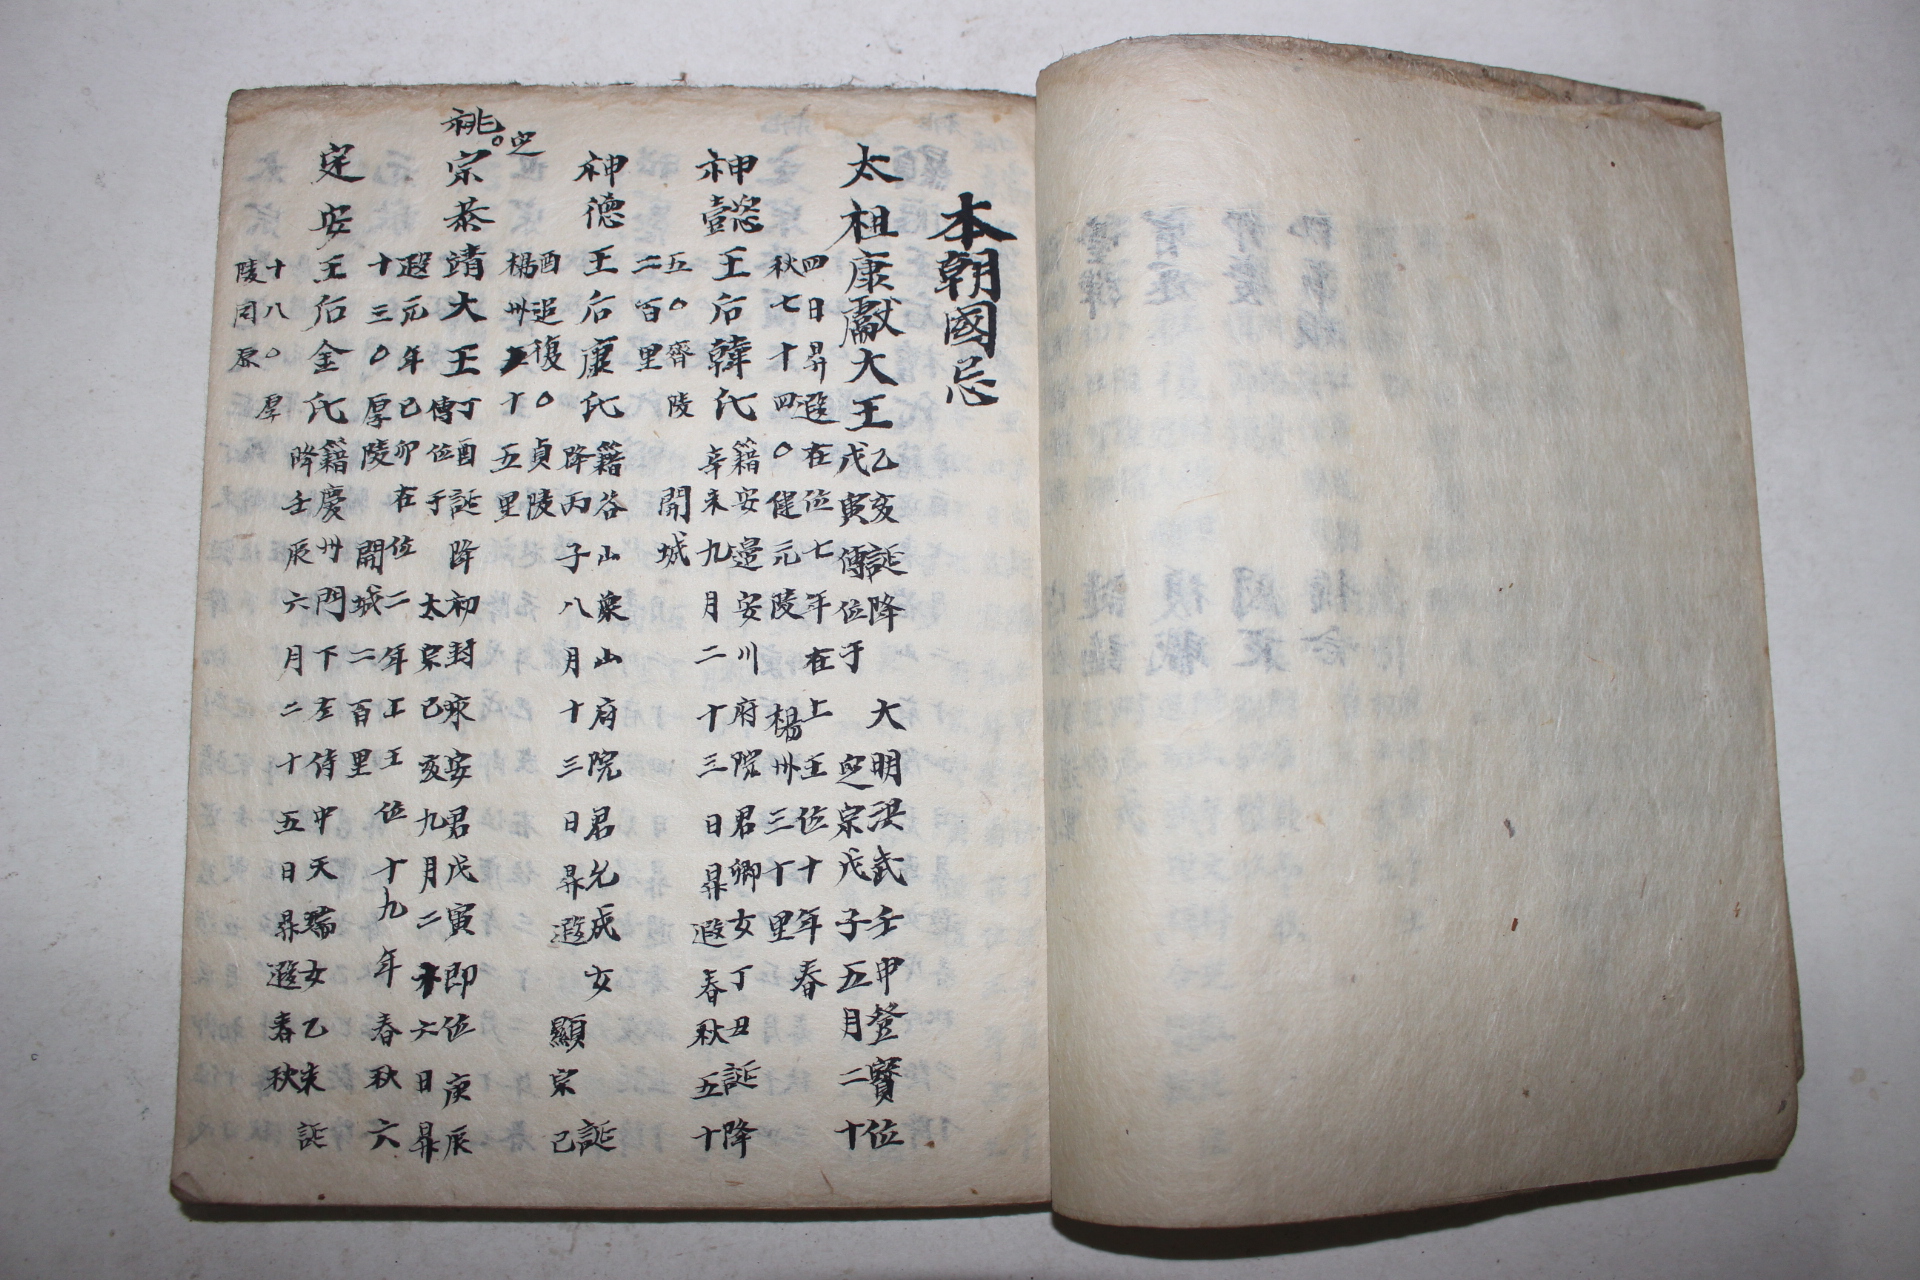 本朝國忌
太祖康獻大王
乙亥誕降 大明洪武壬申登寶位
戊寅傳位于 定宗戊子五月二十
四日昇遐在位七年在上王位十年春
秋七十四○健元陵 楊州三十里
神懿王后韓氏
籍安邊安川府院君卿女丁丑誕降
辛未九月二十三日昇遐春秋五十
五○齊陵 開城
二百里
神德王后康氏
籍谷山象山府院君允成女 誕
降丙子八月十三日昇遐 顯宗己
酉追復○貞陵
楊州十五里
祧○定宗恭靖大王
丁酉誕降初封永安君戊寅即位庚辰
傳位于 太宗己亥九月二十六日昇
遐元年己卯在位二年上王位十九年春秋六
十三○厚陵 開城二百里
定安王后金氏
籍慶州門下左侍中天瑞女乙未誕
降壬辰六月二十五日昇遐春秋
十八○厚
陵同原